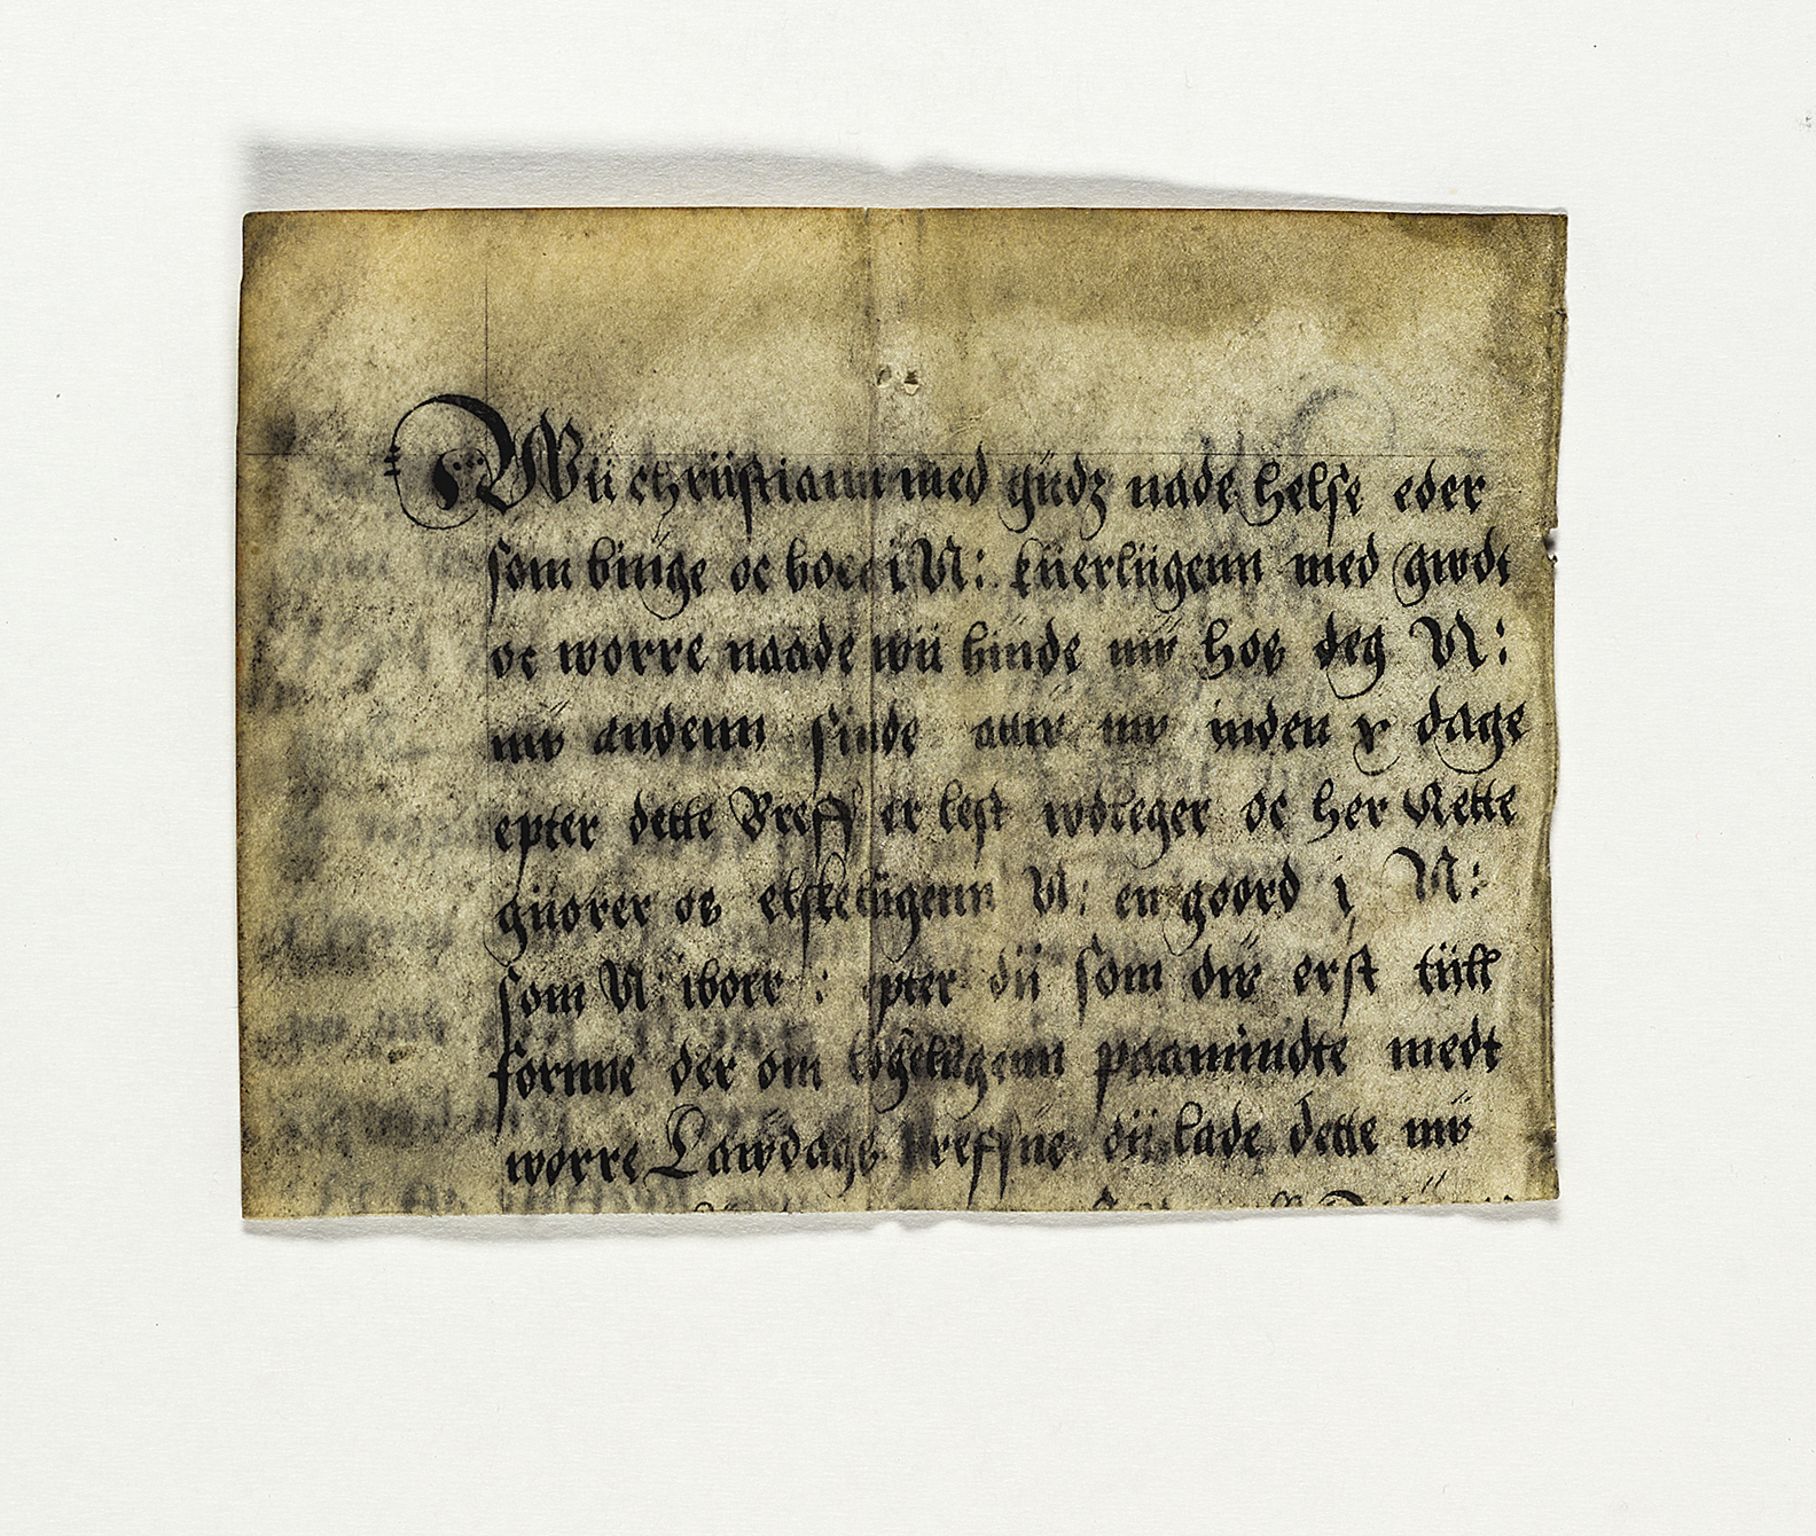 Wii chriistiann med gudz nade helse eder
som biuge oc boer i N: kierliigenn med gwdt
oc worre naade wii biude nw hos deg N:
nw andenn sinde attw nw inden x dage
epter dette Breff er lest wdleger oc her Rette
giiorer os elskeliigenn N: en goord i N:
som N: iborr : epter dii som dw erst tiill
fornne der om logeliigenn paamindte medt
worre Lawdags breffne dii lade dette nw